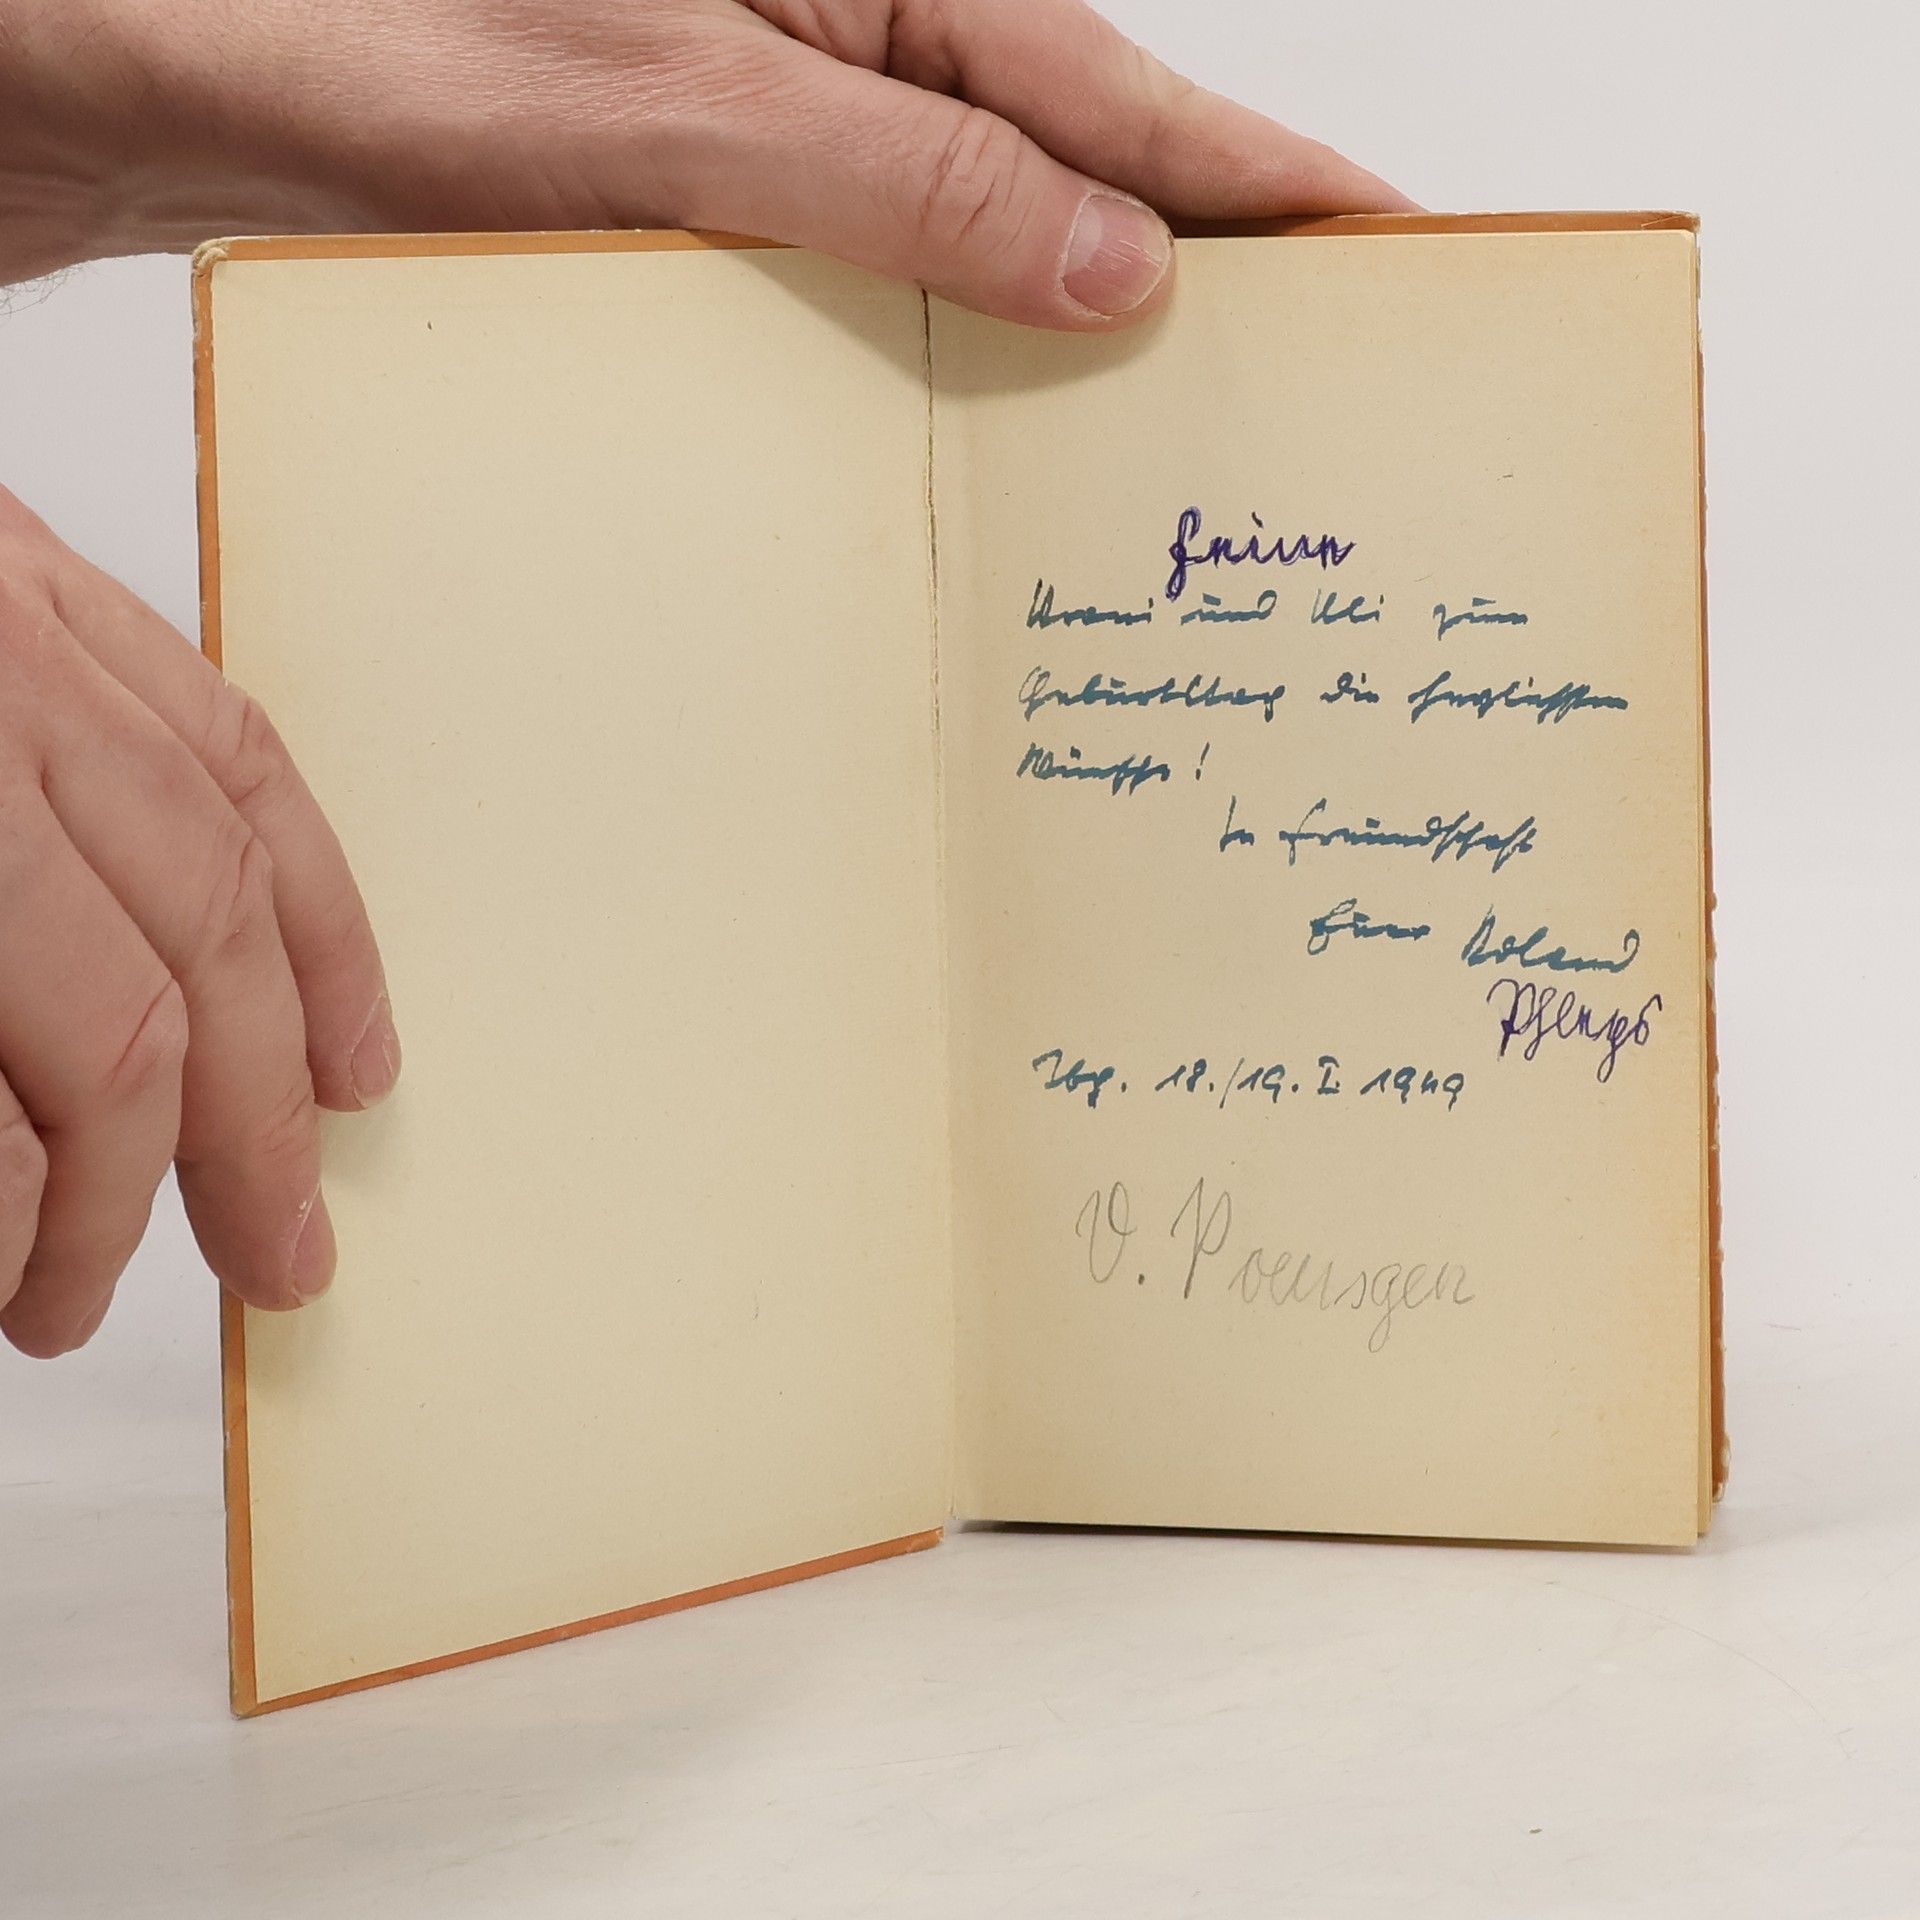 und Uli zum
Geburtstag die herzlichsten
Wünsche!
In Freundschaft
Euer Roland
Ibg. 18./19. I. 1949
V. Poensgen